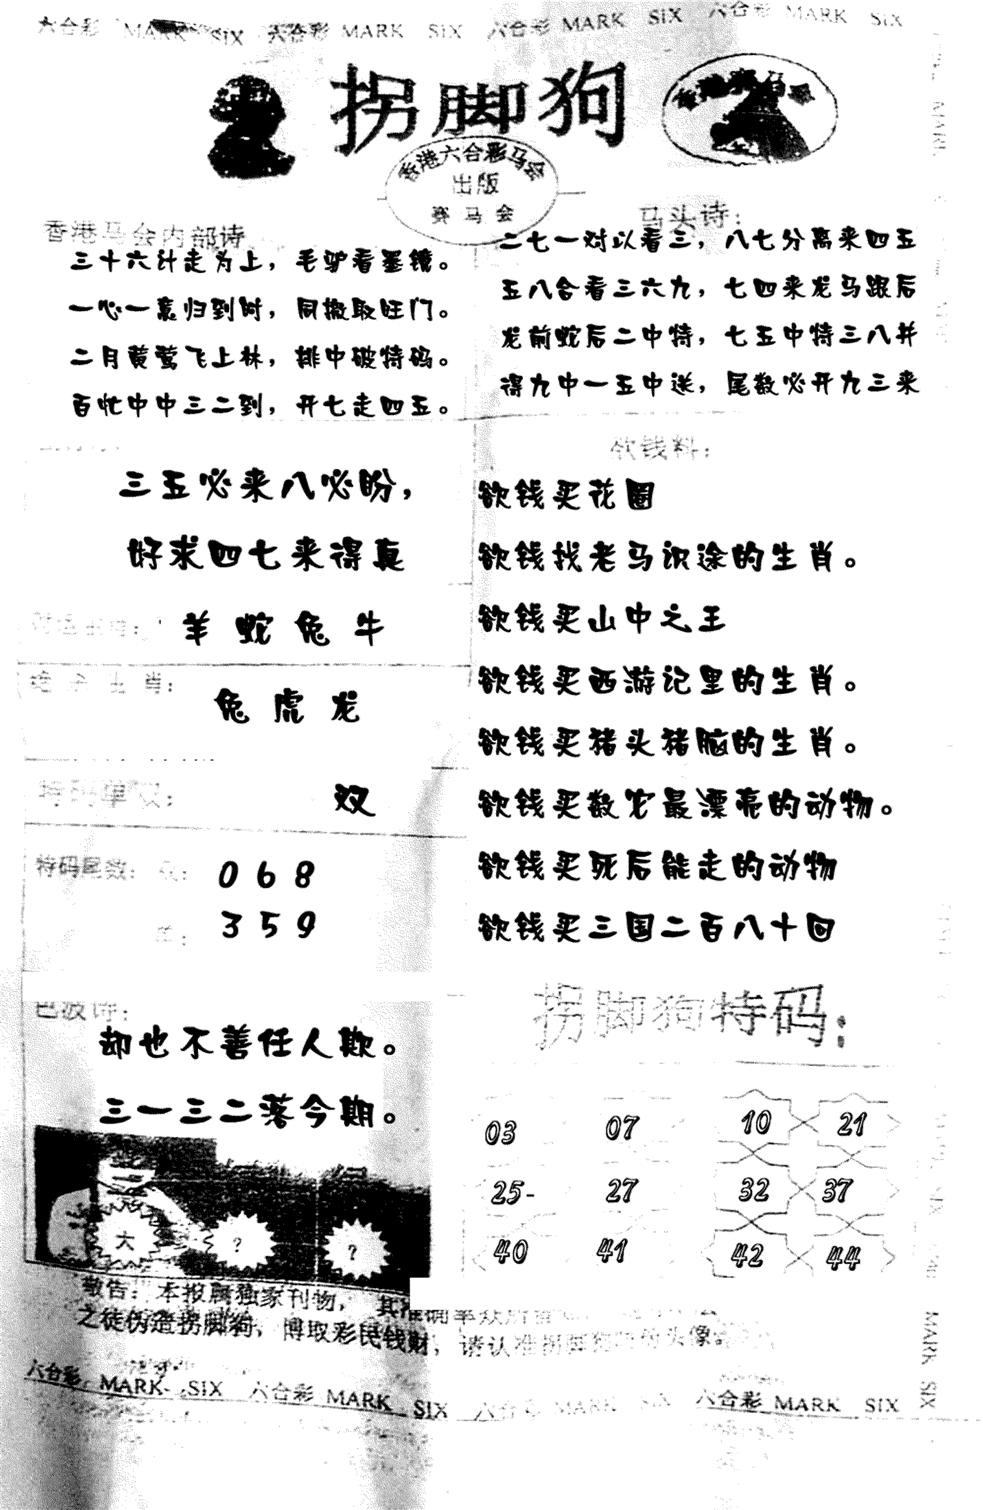 六合彩 MARK SIX 六合彩 MARK SIX 六合彩 MARK SIX 六合彩 MARK SIX
拐脚狗
香港赛马会
香港六合彩马会
出版
赛马会
香港马会内部诗
三十六计走为上，毛驴看墨镜。
一心一意归到时，同撒取旺门。
二月黄莺飞上林，排中破特码。
百忙中中三二到，开七走四五。
马头诗：
二七一对以看三，八七分离来四五
五八合看三六九，七四来龙马跟后
龙前蛇后二中特，七五中特三八并
得九中一五中送，尾数必开九三来
三五必来八必盼，
好求四七来得真
羊 蛇 兔 牛
绝杀生肖：
兔 虎 龙
特码单双：
双
特码尾数：双：
0 6 8
单：
3 5 9
色波诗：
却也不善任人欺。
三一三二落今期。
大
?
?
欲钱料：
欲钱买花圈
欲钱找老马识途的生肖。
欲钱买山中之王
欲钱买西游记里的生肖。
欲钱买猪头猪脑的生肖。
欲钱买数它最漂亮的动物。
欲钱买死后能走的动物
欲钱买三国二百八十回
拐脚狗特码：
03 07 10 21
25- 27 32 37
40 41 42 44
敬告：本报属独家刊物，其准确率
之徒伪造拐脚狗，博取彩民钱财，请认准拐脚狗 头像
六合彩 MARK SIX 六合彩 MARK SIX 六合彩 MARK SIX 六合彩 MARK SIX
MARK SIX